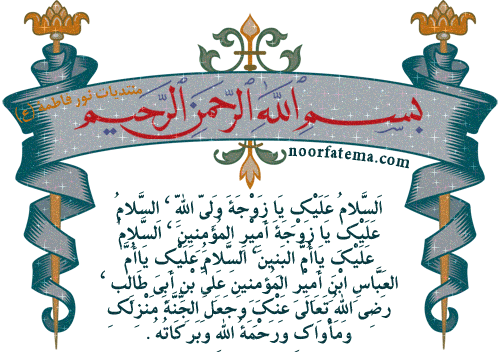 منتديات نور فاطمة (ع)
بِسْمِ ٱللَّهِ ٱلرَّحْمَنِ ٱلرَّحِيمِ
noorfatema.com
اَلسَّلامُ عَلَيْكِ يَا زَوْجَةَ وَلِىِّ اللَّهِ ، السَّلامُ
عَلَيْكِ يَا زَوْجَةَ أَمِيْرِ المُؤْمِنِينَ ، السَّلامُ
عَلَيْكِ يَاأُمَّ البَنِينَ ، السَّلامُ عَلَيْكِ يَاأُمَّ
العَبَّاسِ ابْنِ أَمِيْرِ المُؤْمِنِينَ عَلِيِّ بْنِ أَبِى طَالِبٍ ،
رَضِىَ اللَّهُ تَعَالَى عَنْكِ وَجَعَلَ الجَنَّةَ مَنْزِلَكِ
وَمَأْوَاكِ وَرَحْمَةُ اللهِ وَبَرَكَاتُهُ .